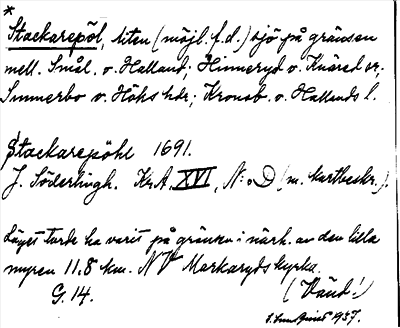 *
Stackarepöl, liten (möjl. f.d.) sjö på gränsen
mell. Smål. o. Halland; Hinneryd o. Knäred sr;
Sunnerbo o. Höks hdr; Kronob. o. Hallands l.
Stackarepöhl 1691.
J. Söderlingh. Kr.A. XVI, N:o D (m. kartbeskr.).
Läget torde ha varit på gränsen i närh. av den lilla
myren 11.8 km. NV Markaryds kyrka.
G. 14. (Vänd!)
1937.